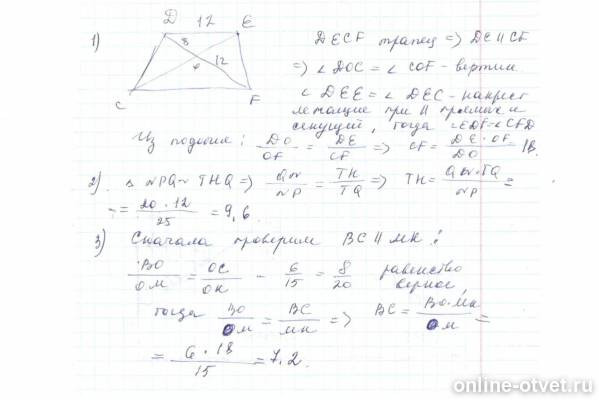 D 12 E
8
12
C F
1) DECF трапец => DE || CF
=> ∠DOC = ∠COF - вертик.
∠DEE = ∠DEC - накрест
лежащие при || прямых и
секущий, тогда ∠EDF = ∠CFD
Из подобия: DO/OF = DE/CF => CF = DE · OF/DO = 18.
2) NPQ ~ THQ => QN/NP = TH/TQ => TH = QN · TQ/NP =
= 20 · 12/25 = 9,6.
3) Сначала проверим BC || MK:
BO/OM = OC/OK - 6/15 = 8/20 равенство
верное,
тогда BO/OM = BC/MK => BC = BO · MK/OM =
= 6 · 18/15 = 7,2.
online-otvet.ru